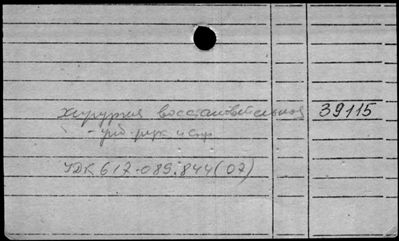 хирургия восстановительная 39115
- учеб. рук. и спр.
УДК 617-089.844(07)